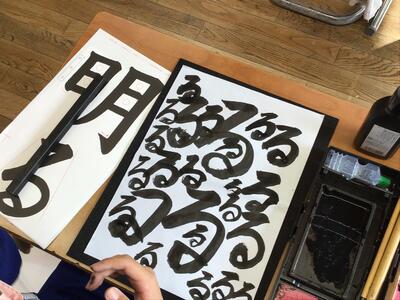 明る
るるるるるる
るるるるる
るるるるるる
るるるるる
るるるるる